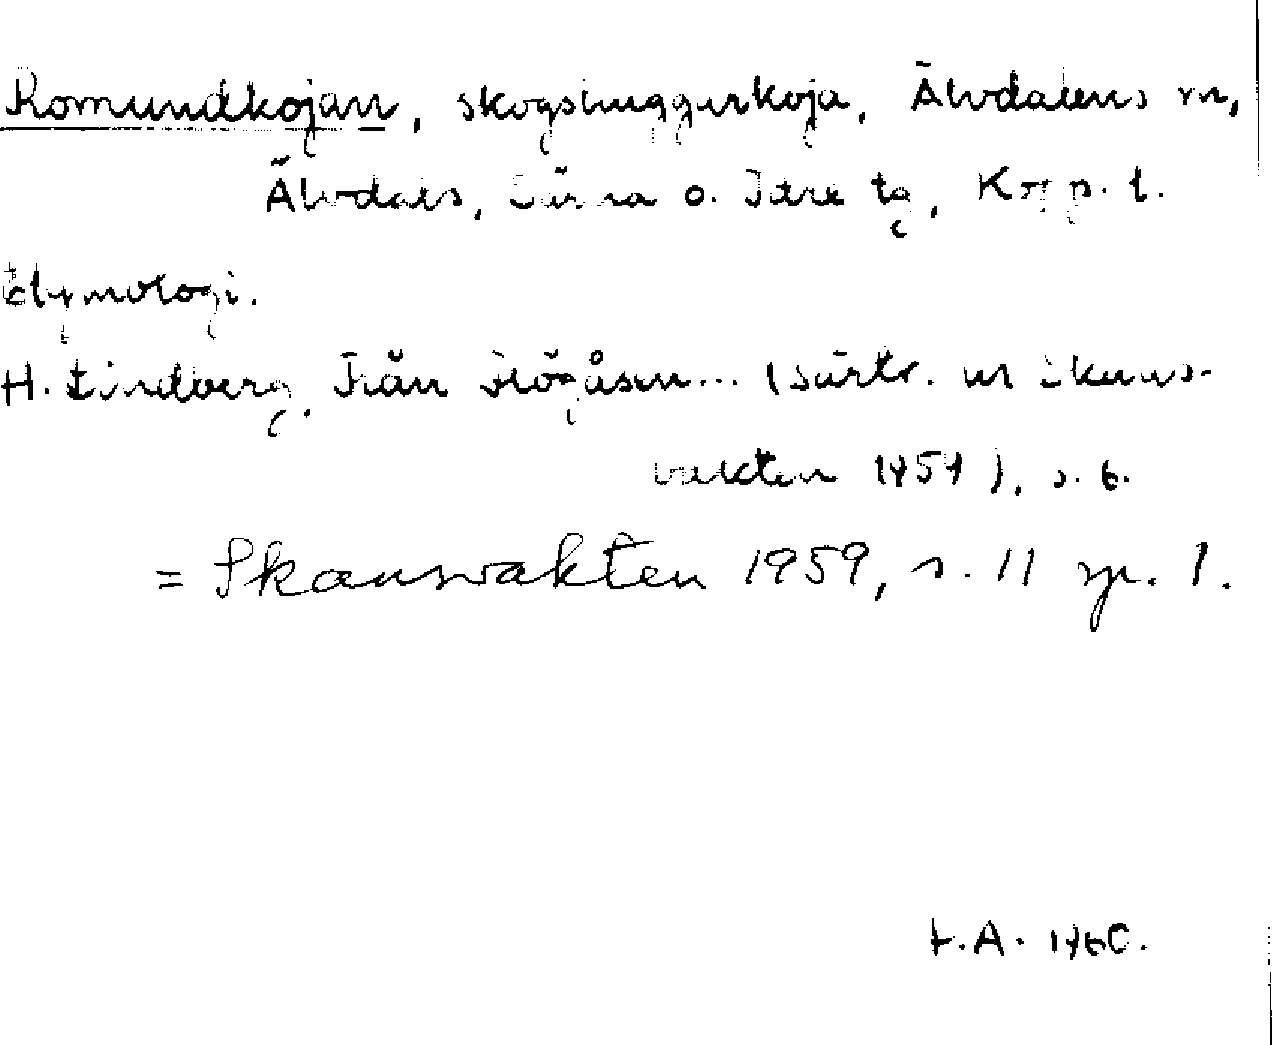 Romundkojan, skogshuggarkoja, Älvdalens sn,
Älvdals, Särna o. Idre tg, Kopp. l.
Etymologi.
H. Lindberg, Från Högåsen... (särtr. ur Skans-
vakten 1959), s. 6.
= Skansvakten 1959, s. 11 sp. 1.
F.A. 1960.